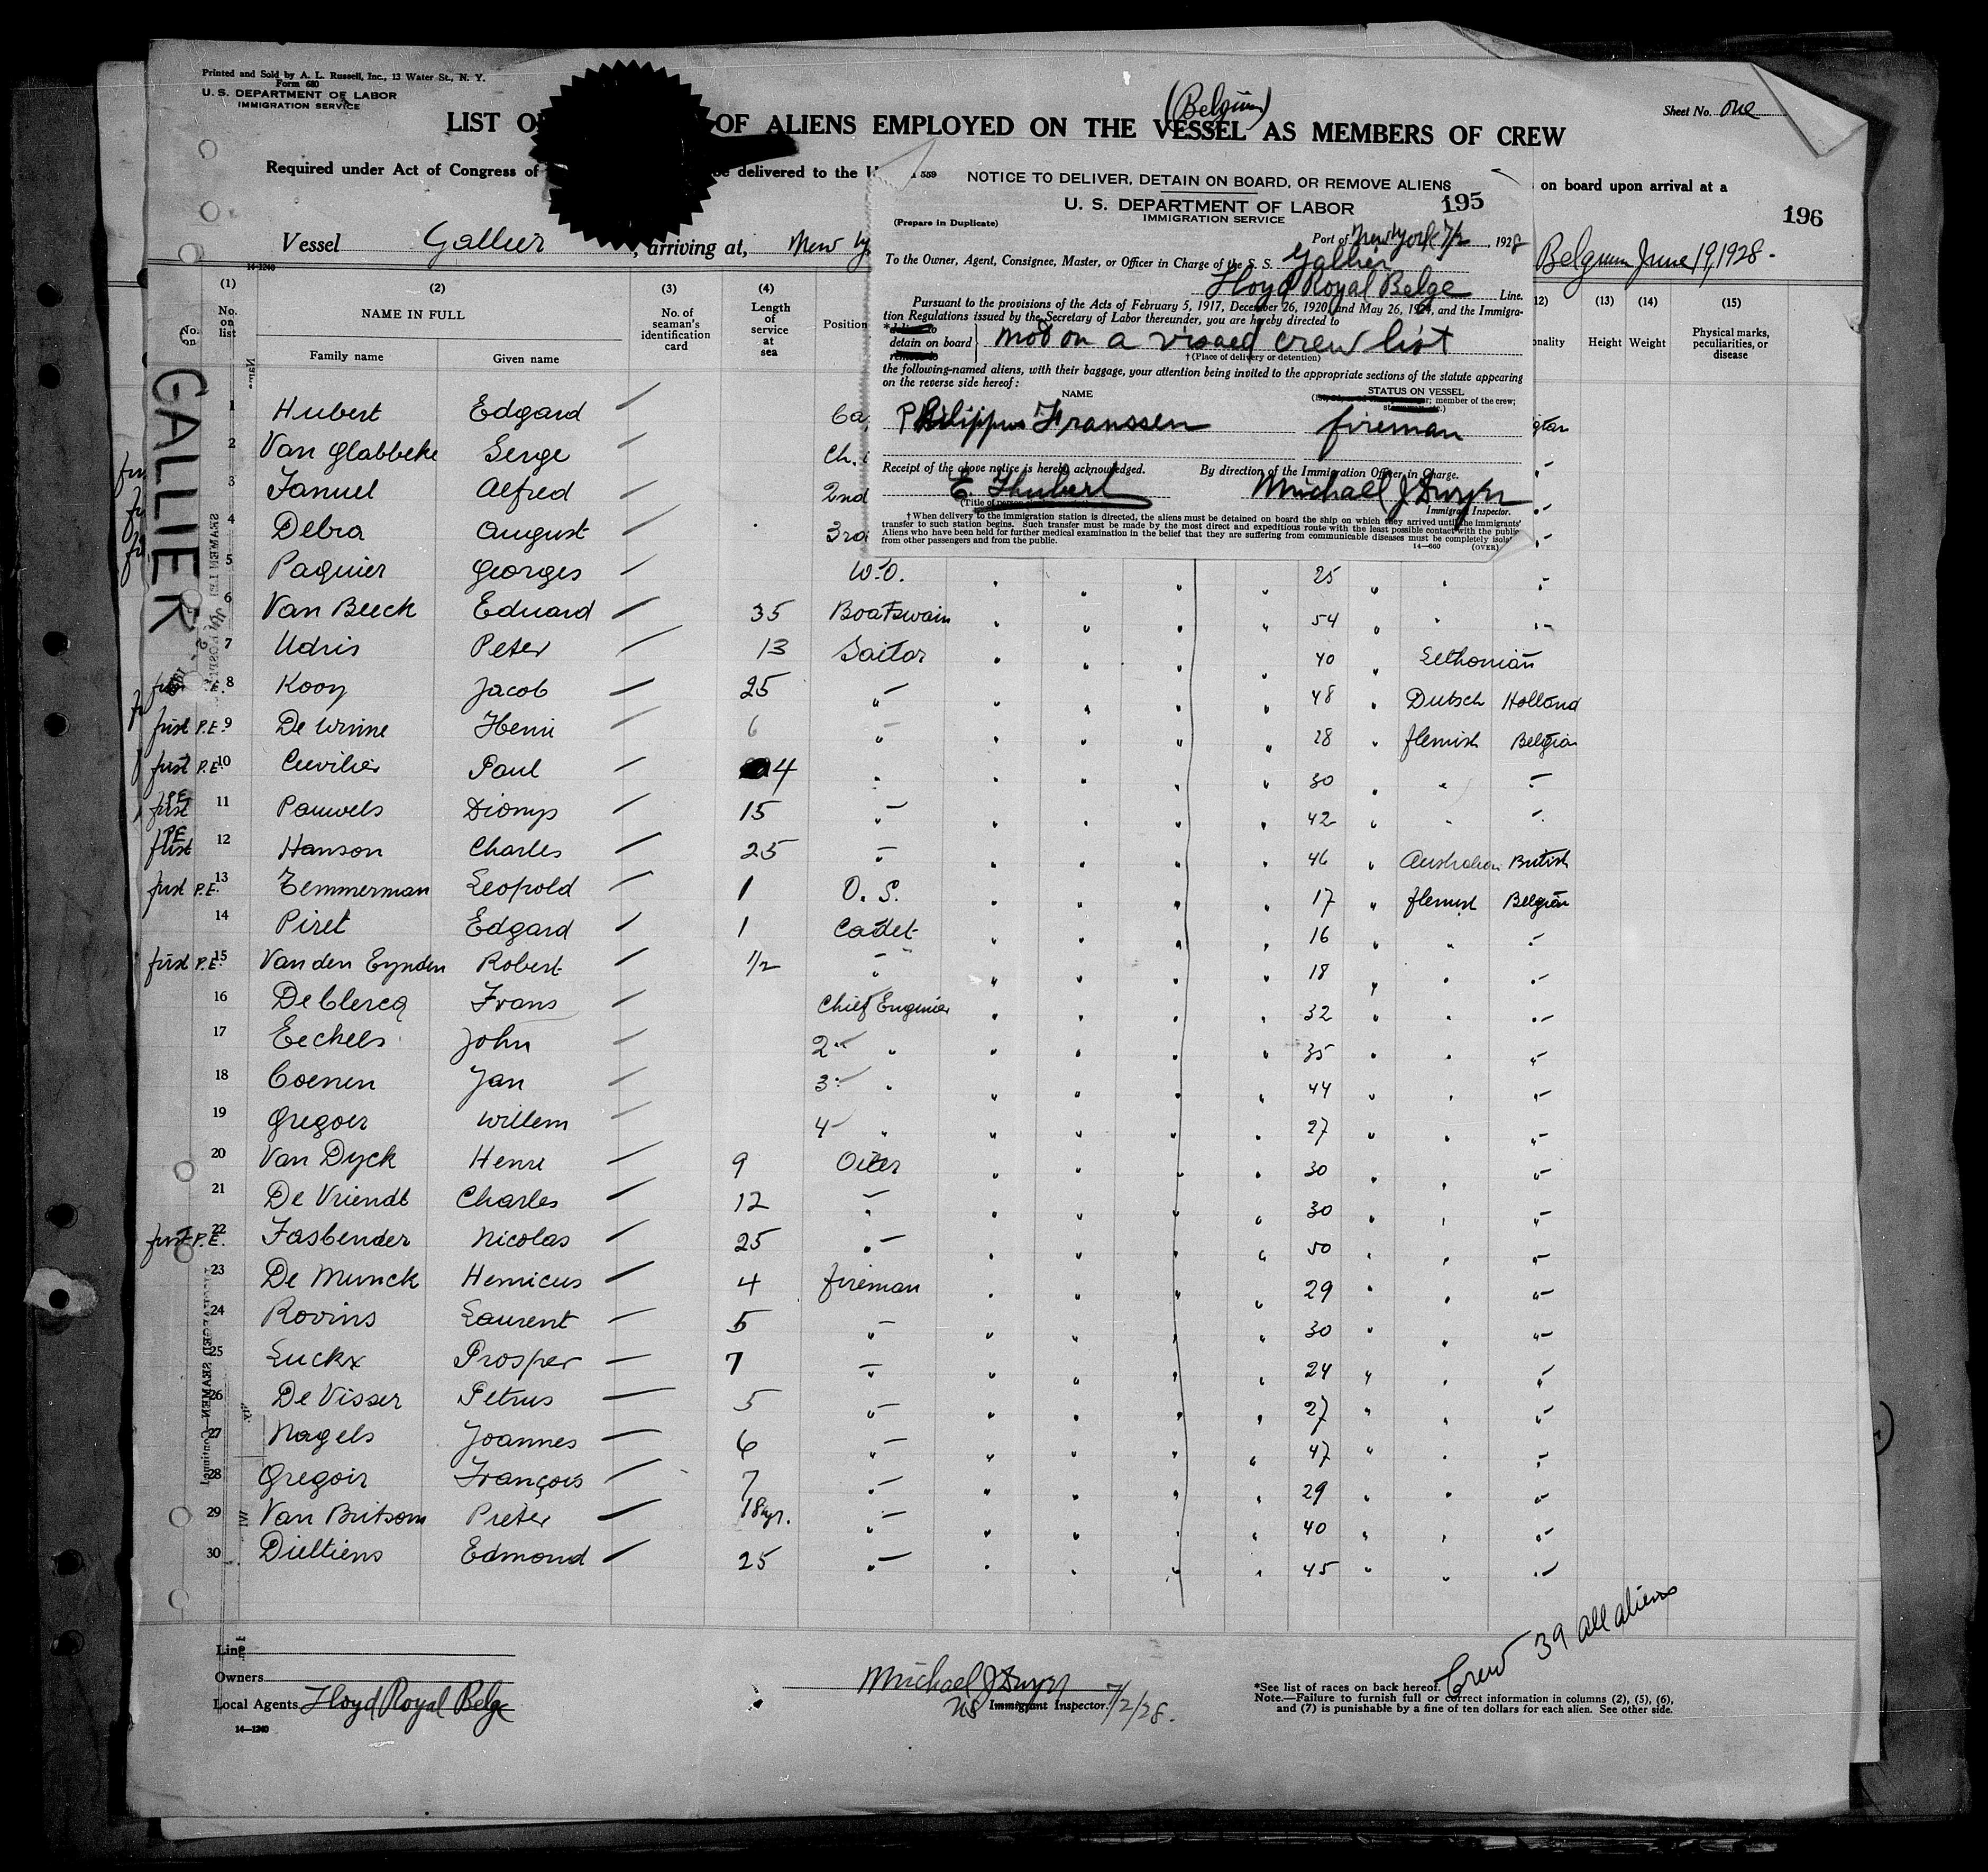 Printed and Sold by A. L. Russell, Inc., 13 Water St., N. Y.
Form 680
U. S. DEPARTMENT OF LABOR
IMMIGRATION SERVICE
(Belgium)
Sheet No. One
LIST O OF ALIENS EMPLOYED ON THE VESSEL AS MEMBERS OF CREW
Required under Act of Congress of be delivered to the U on board upon arrival at a
196
Vessel Gallier, arriving at, New Y Belgium June 19, 1928.
559
NOTICE TO DELIVER, DETAIN ON BOARD, OR REMOVE ALIENS
195
U. S. DEPARTMENT OF LABOR
IMMIGRATION SERVICE
(Prepare in Duplicate)
Port of New York 7/2, 1928
To the Owner, Agent, Consignee, Master, or Officer in Charge of the S. S. Gallier
Lloyd Royal Belge Line.
Pursuant to the provisions of the Acts of February 5, 1917, December 26, 1920, and May 26, 1924, and the Immigra-
tion Regulations issued by the Secretary of Labor thereunder, you are hereby directed to
detain on board } not on a visaed crew list
† (Place of delivery or detention)
the following-named aliens, with their baggage, your attention being invited to the appropriate sections of the statute appearing
on the reverse side hereof:
NAME STATUS ON VESSEL
member of the crew;
Philippus Franssen fireman
Receipt of the above notice is hereby acknowledged. By direction of the Immigration Officer in Charge.
E. Hubert Michael J Dwyer
Immigrant Inspector.
† When delivery to the immigration station is directed, the aliens must be detained on board the ship on which they arrived until the immigrants'
transfer to such station begins. Such transfer must be made by the most direct and expeditious route with the least possible contact with the public.
Aliens who have been held for further medical examination in the belief that they are suffering from communicable diseases must be completely isola
from other passengers and from the public.
14—660 (OVER)
14-1240
(1) (2) (3) (4) 12) (13) (14) (15)
No. on list NAME IN FULL No. of seaman's identification card Length of service at sea Position onality Height Weight Physical marks, peculiarities, or disease
Family name Given name
GALLIER
1 Hubert Edgard Ca
2 Van Glabbeke Serge Ch.
3 Fanuel Alfred 2nd
4 Debra August 3rd
5 Paquier Georges W.O. " " " " 25 " " "
6 Van Beeck Eduard 35 Boatswain " " " " 54 " " "
7 Udris Peter 13 Sailor " " " " 40 " Esthonian
8 Kooy Jacob 25 " " " " " 48 " Dutsch Holland
first P.E. 9 De Winne Henri 6 " " " " " 28 " flemish Belgian
first P.E. 10 Cuvilier Paul 4 " " " " " 30 " " "
first PE 11 Pauwels Dionys 15 " " " " " 42 " " "
first PE 12 Hanson Charles 25 " " " " " 46 " Australian British
first P.E. 13 Temmerman Leopold 1 O. S. " " " " 17 " flemish Belgian
14 Piret Edgard 1 Cadet " " " " 16 " " "
first P.E. 15 Van den Eynden Robert 1/2 " " " " " 18 " " "
16 De Clercq Frans Chief Engineer " " " " 32 " " "
17 Eeckels John 2 " " " " " 35 " " "
18 Coenen Jan 3 " " " " " 44 " " "
19 Gregoir Willem 4 " " " " " 27 " " "
20 Van Dyck Henri 9 Oiler " " " " 30 " " "
21 De Vriendt Charles 12 " " " " " 30 " " "
first P.E. 22 Fasbender Nicolas 25 " " " " " 50 " " "
23 De Munck Henricus 4 fireman " " " " 29 " " "
24 Rovins Laurent 5 " " " " " 30 " " "
25 Luckx Prosper 7 " " " " " 24 " " "
26 De Visser Petrus 5 " " " " " 27 " " "
27 Nagels Joannes 6 " " " " " 47 " " "
28 Gregoir François 7 " " " " " 29 " " "
29 Van Britsom Pieter 18yr. " " " " " 40 " " "
30 Dieltiens Edmond 25 " " " " " 45 " " "
Crew 39 all aliens
Line
Owners
Local Agents Lloyd Royal Belge
14—1240
Michael J Dwyer
Immigrant Inspector. 7/2/28.
*See list of races on back hereof.
Note.—Failure to furnish full or correct information in columns (2), (5), (6),
and (7) is punishable by a fine of ten dollars for each alien. See other side.